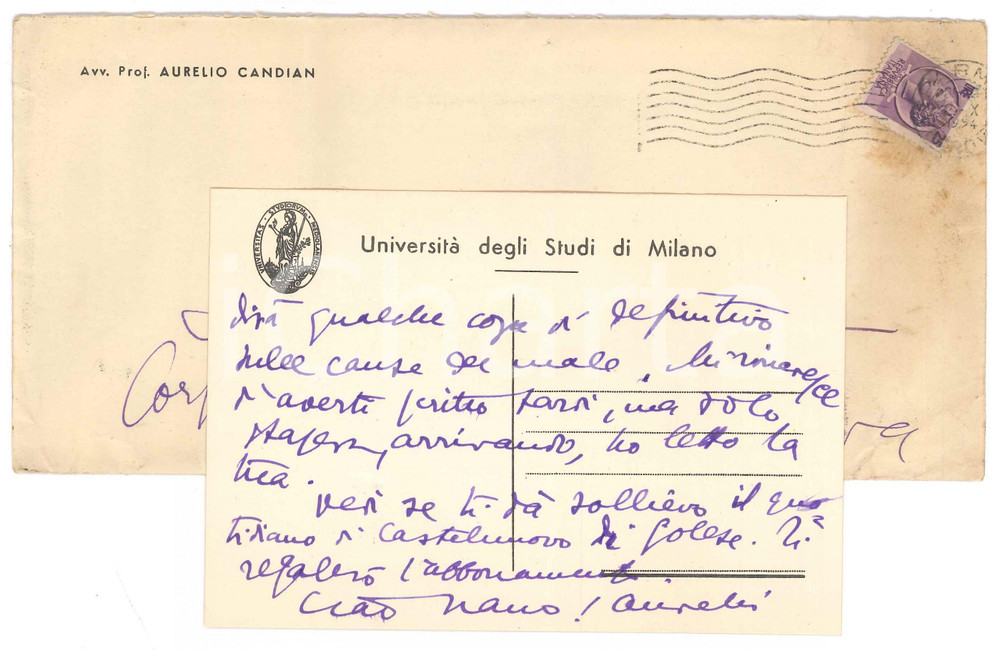 Avv. Prof. AURELIO CANDIAN
REPUBBLICA ITALIANA
UNIVERSITAS STUDIORUM MEDIOLANENSIS
Università degli Studi di Milano
dirà qualche cosa di definitivo
sulle cause del male. Mi rincresce
di averti scritto tardi, ma solo
stasera, arrivando, ho letto la
tua.
Vedi se ti dà sollievo il quo
tidiano di Castelnovo di Golese. Ti
regalerò l'abbonamento.
Ciao Nano! Aurelio